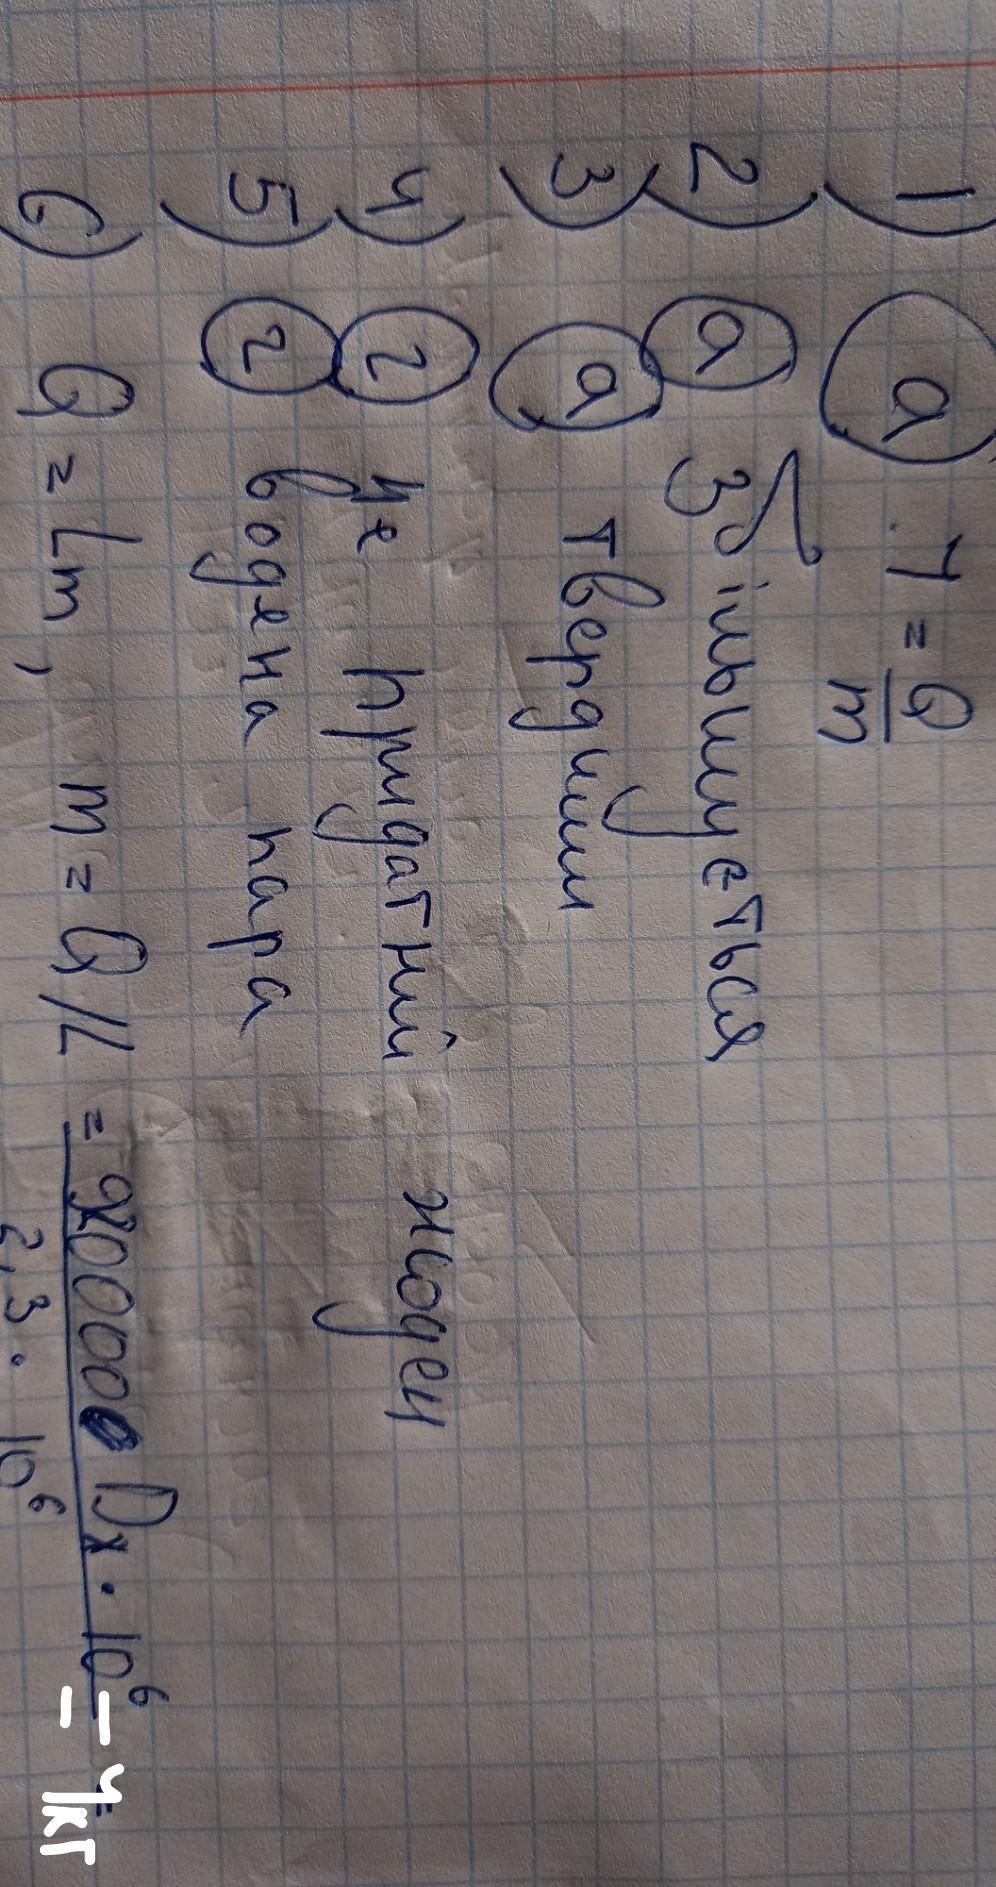 1) а . Ч = Q/m
2) а Збільшується
3) а твердими
4) г Не придатний жоден
5) г водена пара
6) Q = Lm, m = Q/L = 920000 Dж · 10⁶ / 2,3 · 10⁶ = 4кг